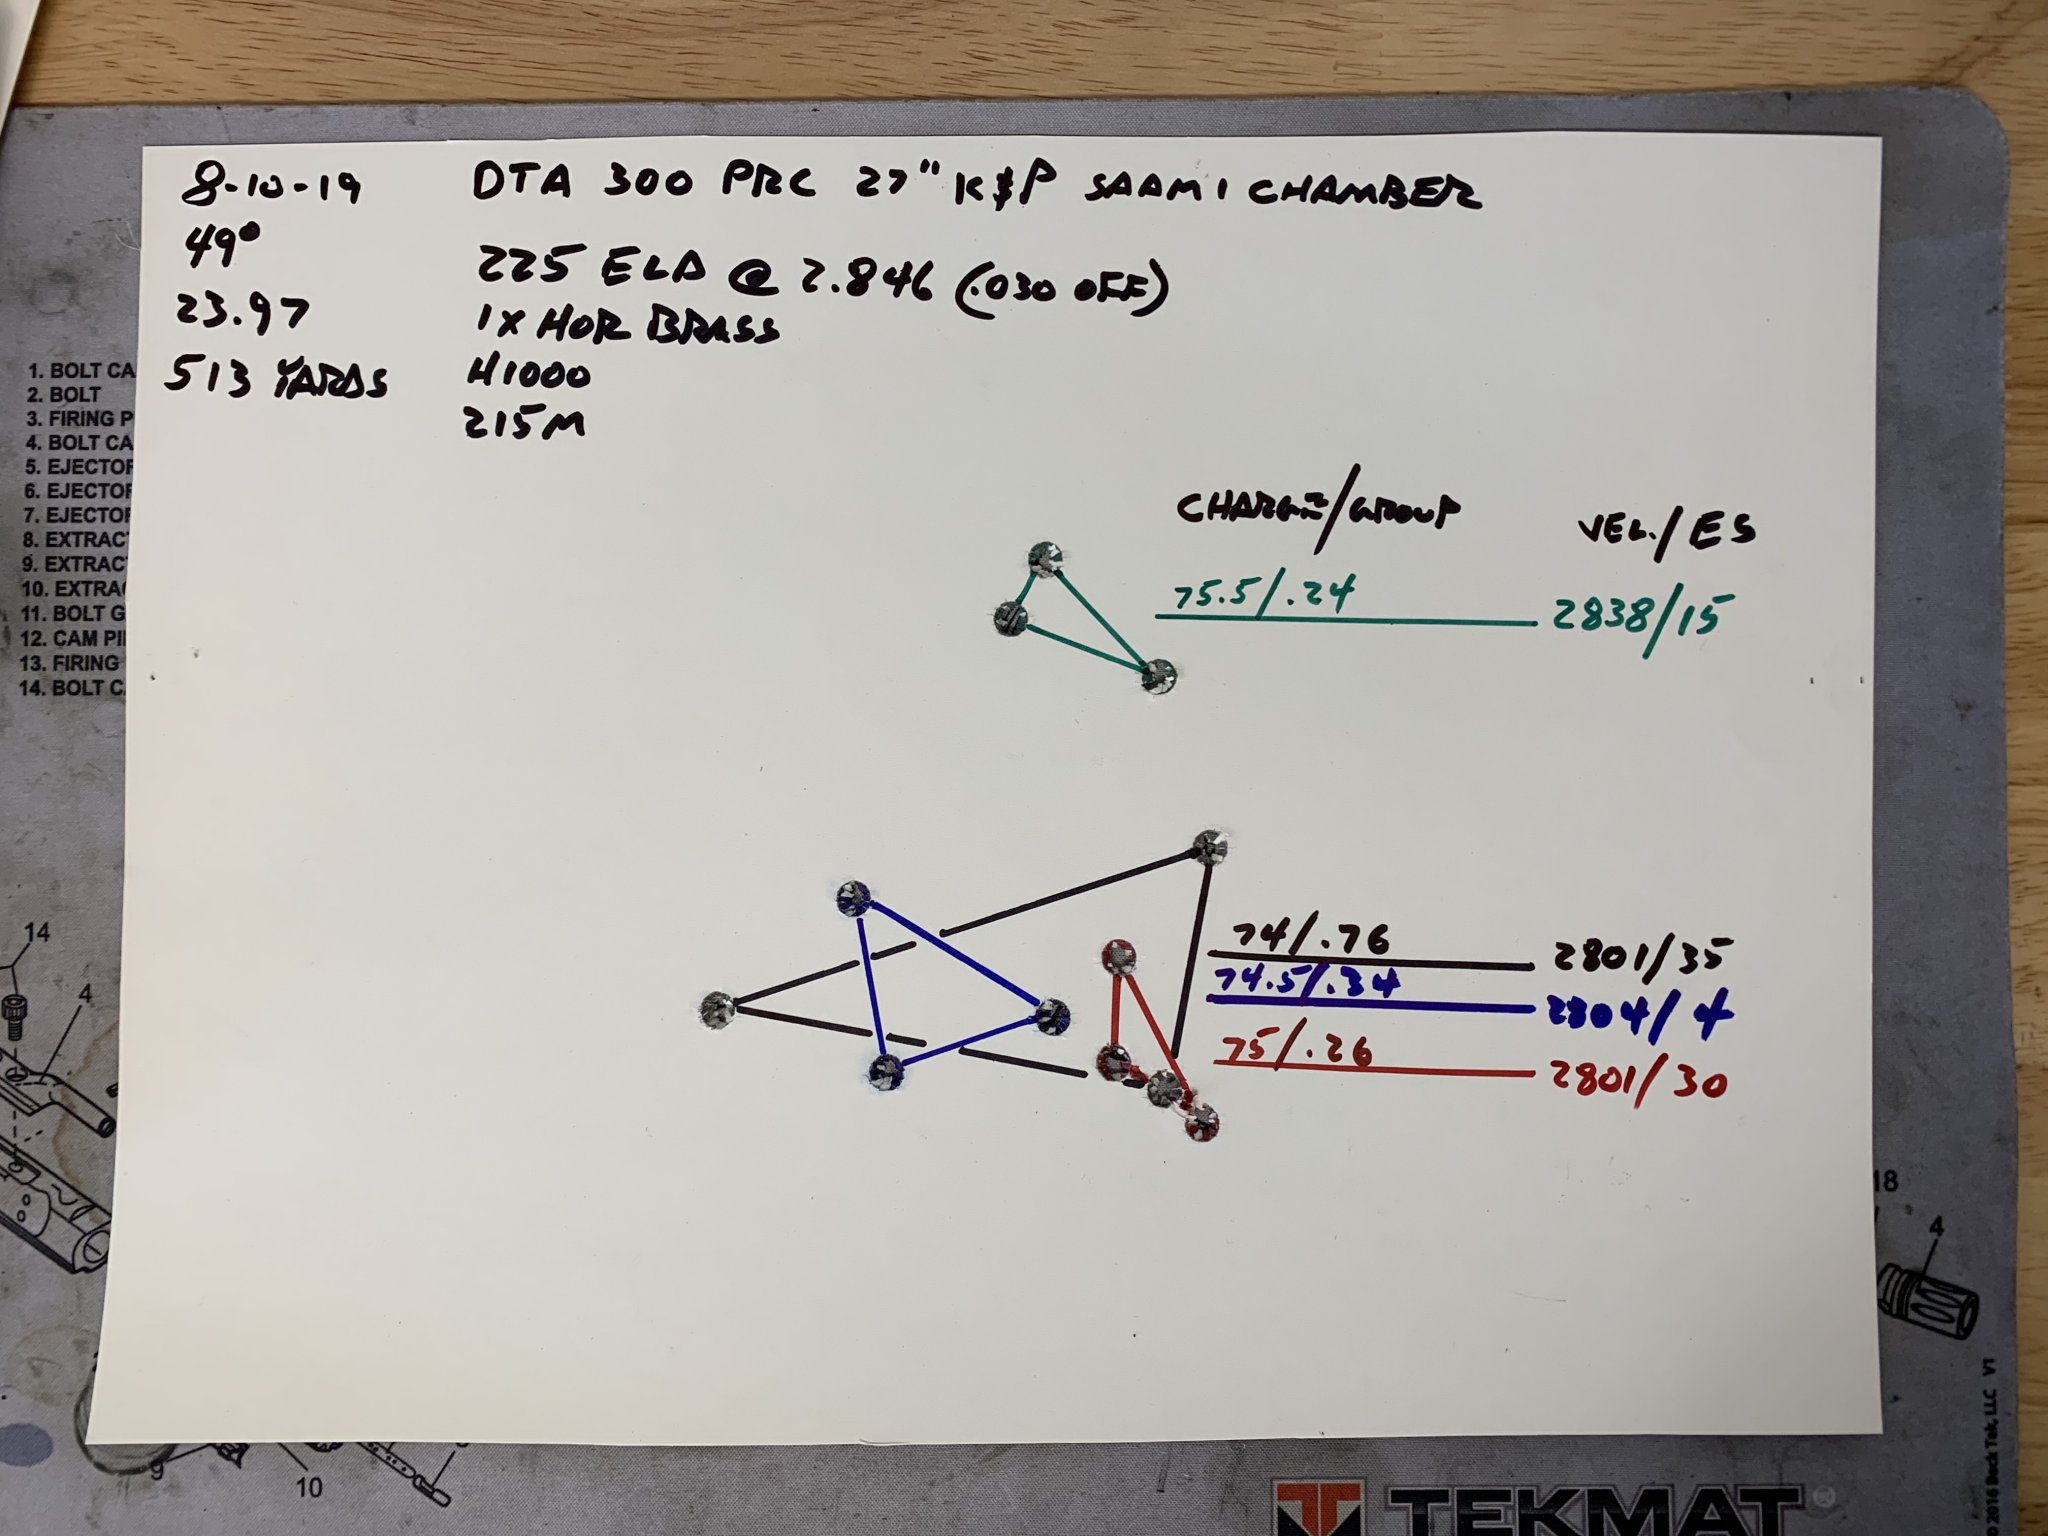 8-10-19
49°
23.97
513 YARDS
DTA 300 PRC 27" K&P SAAMI CHAMBER
225 ELD @ 2.846 (.030 OFF)
1X HOR BRASS
H1000
215M
CHARGE/GROUP
VEL./ES
75.5/.24
2838/15
74/.76
2801/35
74.5/.34
2804/4
75/.26
2801/30
1. BOLT CA
2. BOLT
3. FIRING P
4. BOLT CA
5. EJECTOR
6. EJECTOR
7. EJECTOR
8. EXTRAC
9. EXTRAC
10. EXTRA
11. BOLT G
12. CAM PI
13. FIRING
14. BOLT C
14
4
9
10
18
4
TEKMAT®
2016 Beck Tek, LLC V1